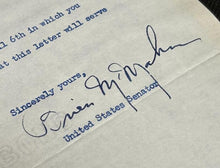 ll 6th in which you
t this letter will serve
Sincerely yours,
Brien McMahon
United States Senator